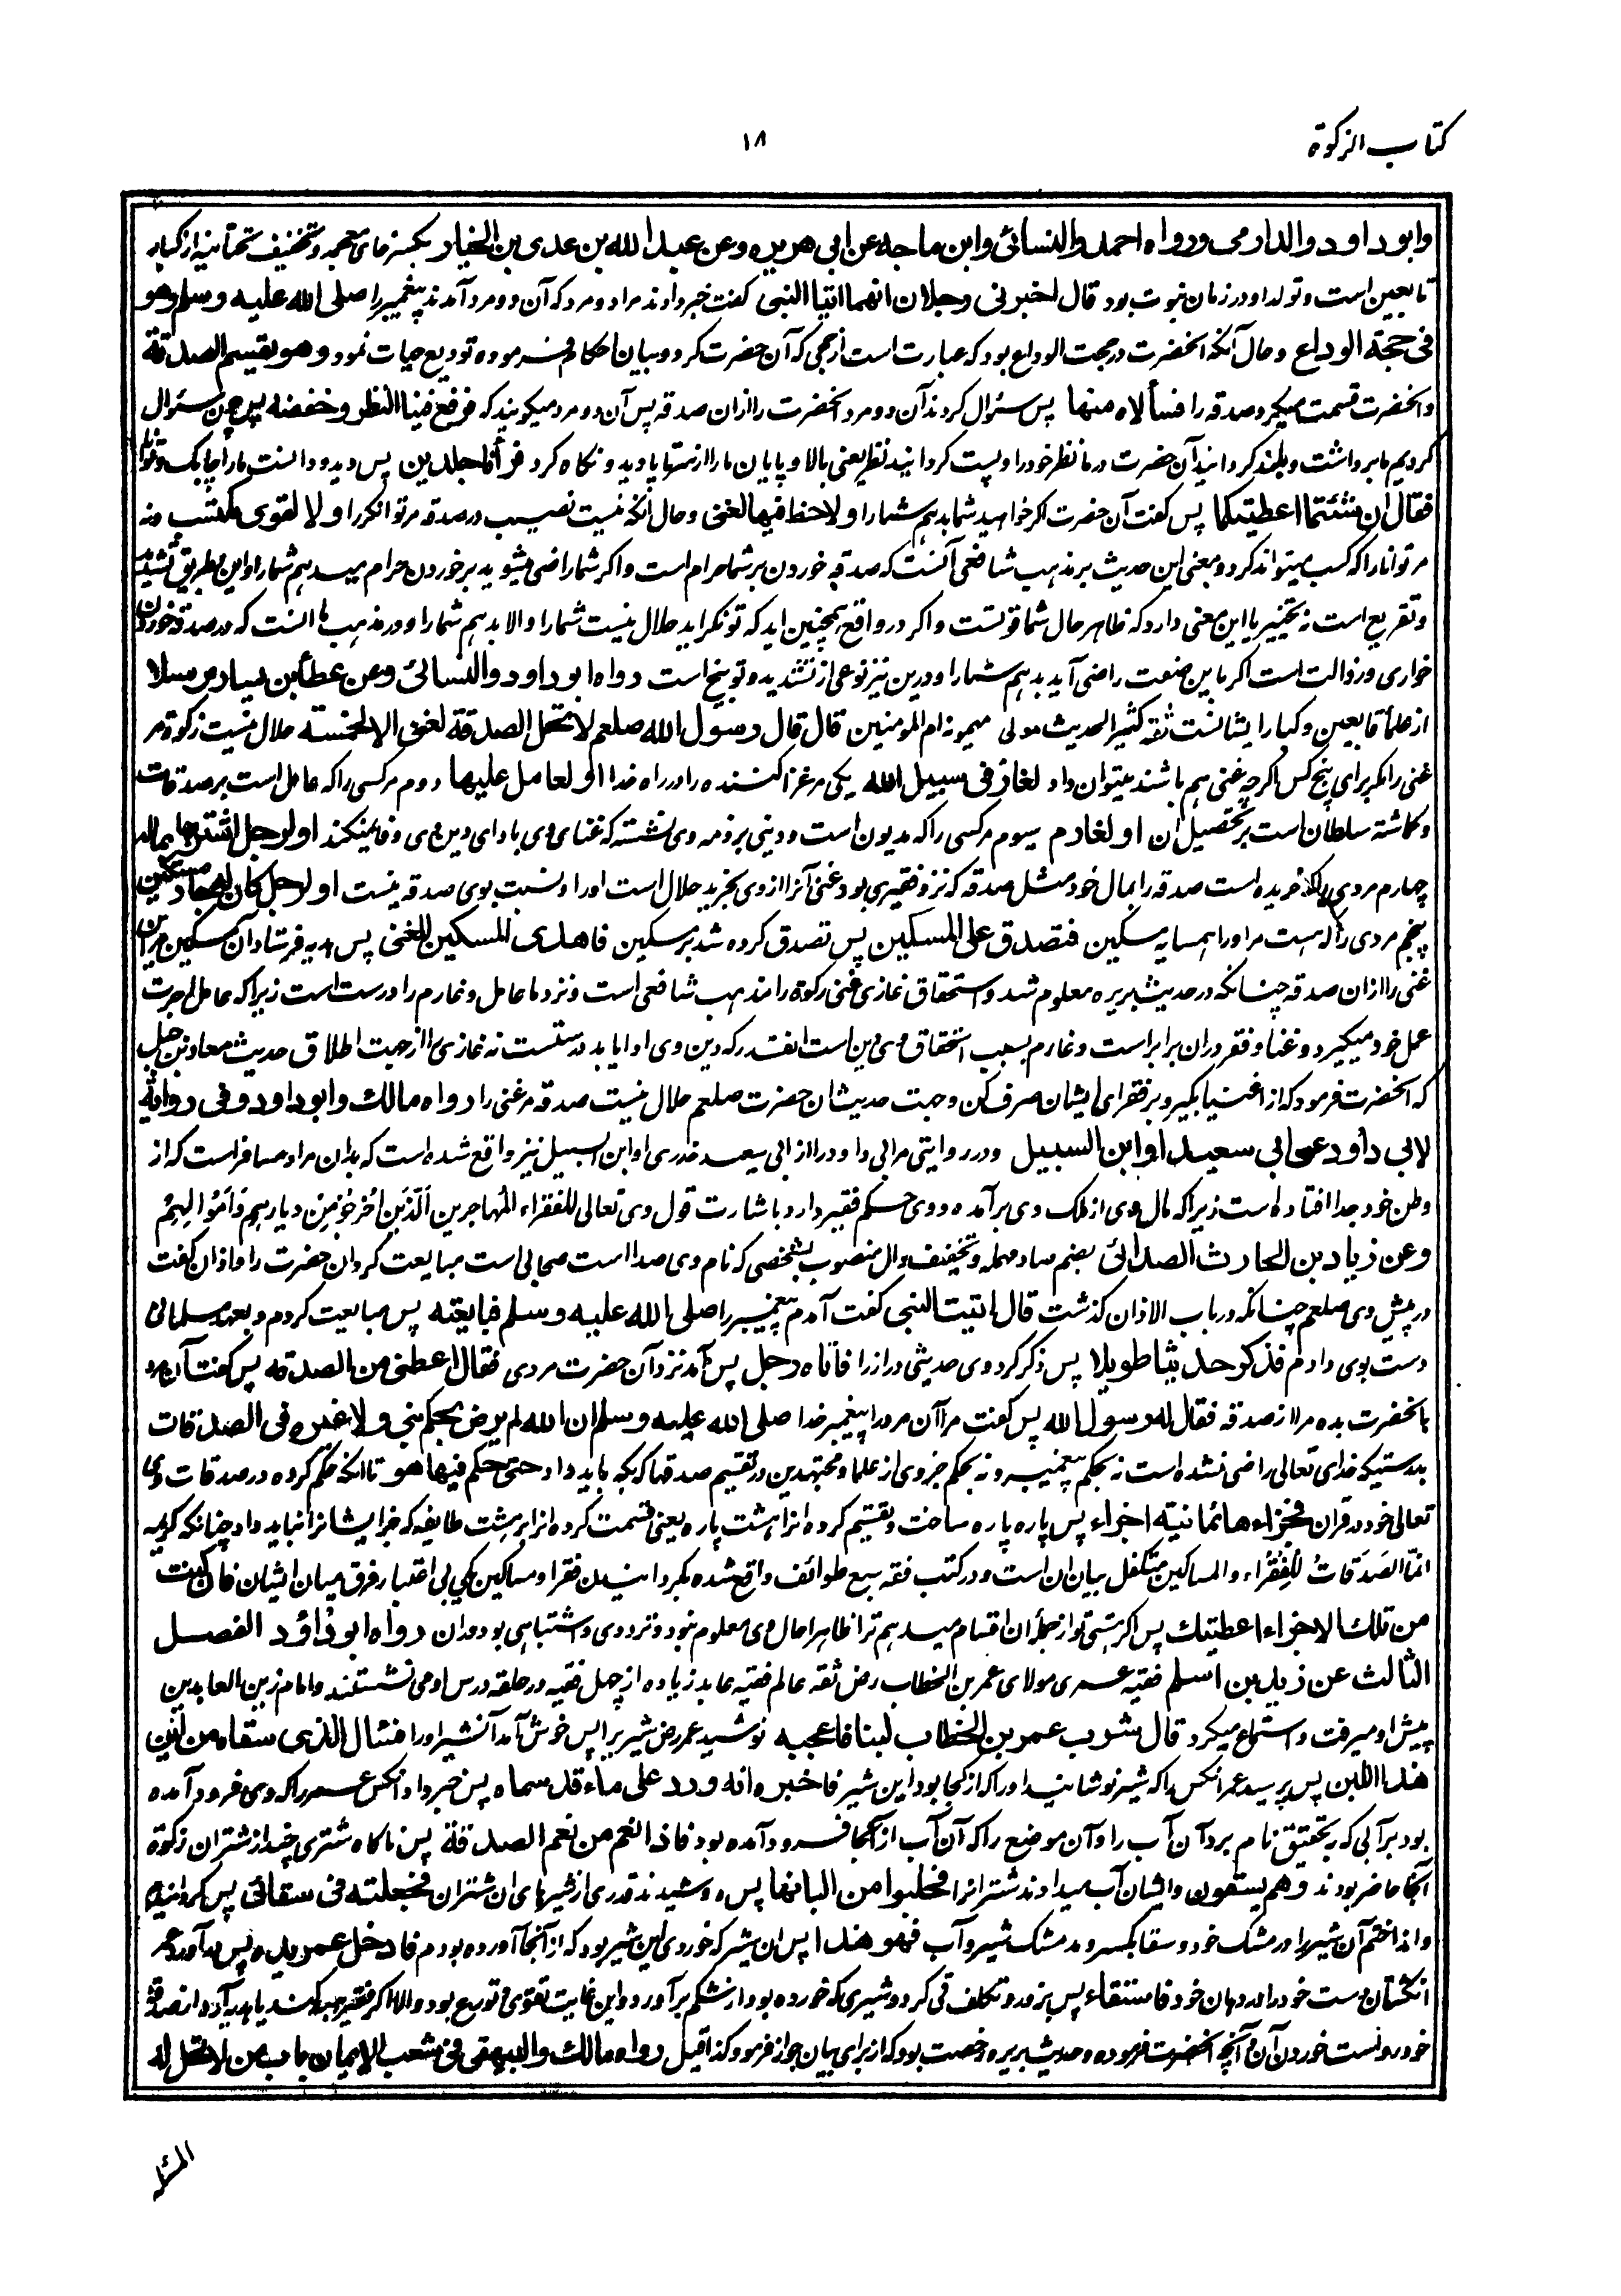 كتاب الزكوة
١٨
وابوداود والدارمى ورواه احمد والنسائى وابن ماجه عن ابى هريره وعن عبد الله بن عدى بن الخيار بكسر خاى معجمه وتخفيف تحتانيه از كبار
تابعين است وتولد او در زمان نبوت بود قال اخبرنى رجلان انهما اتيا النبى گفت خبر دادند مرا دو مرد كه آن دو مرد آمدند پيغمبر را صلى الله عليه وسلم وهو
فى حجة الوداع وحال آنكه آنحضرت در حجت الوداع بود كه عبارت است از حجى كه آن حضرت كرد و بيان احكام فرموده توديع حيات نمود وهو يقسم الصدقة
وآنحضرت قسمت ميكرد صدقه را فسألاه منها پس سئوال كردند آن دو مرد آنحضرت را ازان صدقه پس آن دو مرد ميگويند كه فرفع فينا النظر وخفضه پس چون سئوال
كرديم ما برداشت و بلند گردانيد آن حضرت در ما نظر خود را و پست گردانيد نظر يعنى بالا و پايان ما را از سر تا پا ديد و نگاه كرد فرآنا جلدين پس ديد و دانست ما را چابك و توانا
فقال ان شئتما اعطيتكما پس گفت آن حضرت اگر خواهيد شما بدهم شما را ولا حظ فيها لغنى وحال آنكه نيست نصيب در صدقه مر توانگر را ولا لقوى مكتسب ونه
مر توانا را كه كسب ميتواند كرد و معنى اين حديث بر مذهب شافعى آنست كه صدقه خوردن بر شما حرام است و اگر شما راضى ميشويد بر خوردن حرام ميدهم شما را و اين بطريق تشديد
و تقريع است نه تخيير يا اين معنى دارد كه ظاهر حال شما قوتست و اگر در واقع همچنين ايد كه تونگرايد حلال نيست شما را والا بدهم شما را و در مذهب ما آنست كه در صدقه خوردن
خوارى ورذالت است اگر باين صنعت راضى آيد بدهم شما را و درين نيز نوعى از تشديد و توبيخ است رواه ابوداود والنسائى وعن عطاء بن يسار مرسلا
از علماء تابعين و كبار ايشانست ثقه كثير الحديث مولى ميمونه ام المومنين قال قال رسول الله صلعم لا تحل الصدقة لغنى الا لخمسة حلال نيست زكوة مر
غنى را مگر براى پنج كس اگرچه غنى هم باشند ميتوان داد لغاز فى سبيل الله يكى مر غزا كننده را در راه خدا او لعامل عليها دوم مر كسى را كه عامل است بر صدقات
و گماشته سلطان است بر تحصيل آن او لغارم سيوم مر كسى را كه مديون است و دينى بر ذمه وى نشسته كه غناى وى با اداى دين وى وفا نميكند او لرجل اشتراها بماله
چهارم مردى را كه خريده است صدقه را بمال خود مثل صدقه كه نزد فقيرى بود غنى آنرا از وى بخريد حلال است او را و نسبت بوى صدقه نيست او لرجل كان له جار مسكين
پنجم مردى را كه هست مر او را همسايه مسكين فتصدق على المسكين پس تصدق كرده شد بر مسكين فاهدى المسكين للغنى پس هديه فرستاد آن مسكين مر اين
غنى را ازان صدقه چنانكه در حديث بريره معلوم شد و استحقاق غازى غنى زكوة را مذهب شافعى است و نزد ما عامل و غارم را درست است زيرا كه عامل اجرت
عمل خود ميگيرد و غنا و فقر دران برابر است و غارم بسبب استحقاق وى دين است آنقدر كه دين وى ادا يابد درستست نه غازى را از جهت اطلاق حديث معاذ بن جبل
كه آنحضرت فرمود كه از اغنيا بگير و بر فقراى ايشان صرف كن و جهت حديث آن حضرت صلعم حلال نيست صدقه مر غنى را رواه مالك وابوداود وفى رواية
لابى داود عن ابى سعيد او ابن السبيل و در روايتى مر ابى داود را از ابى سعيد خدرى او ابن السبيل نيز واقع شده است كه بدان مراد مسافر است كه از
وطن خود جدا افتاده است زيرا كه مال وى از ملك وى برآمده و وى حكم فقير دارد باشارت قول وى تعالى للفقراء المهاجرين الذين اخرجوا من ديارهم واموالهم
وعن زياد بن الحارث الصدائى بضم صاد مهمله و تخفيف دال منصوب بشخصى كه نام وى صدا است صحابى است مبايعت كرد آن حضرت را و اذان گفت
در پيش وى صلعم چنانكه در باب الاذان گذشت قال اتيت النبى گفت آمدم پيغمبر را صلى الله عليه وسلم فبايعته پس مبايعت كردم و بعهد مسلمانى
دست بوى دادم فذكر حديثا طويلا پس ذكر كرد وى حديثى دراز را فاتاه رجل پس آمد نزد آن حضرت مردى فقال اعطنى من الصدقه پس گفت آن مرد
بآنحضرت بده مرا از صدقه فقال له رسول الله پس گفت مر آن مرد را پيغمبر خدا صلى الله عليه وسلم ان الله لم يرض بحكم نبى ولا غيره فى الصدقات
بدرستيكه خداى تعالى راضى نشده است نه بحكم پيغمبر و نه بحكم جز وى از علما و مجتهدين در تقسيم صدقها كه بكه بايد داد حتى حكم فيها هو تا آنكه حكم كرده در صدقات وى
تعالى خود در قران فجزاءها ثمانية اجزاء پس پاره پاره ساخت و تقسيم كرده آنرا هشت پاره يعنى قسمت كرده آنرا بر هشت طايفه كه جز ايشانرا نبايد داد چنانكه كريمه
انما الصدقات للفقراء والمساكين متكفل بيان ان است و در كتب فقه سبع طوائف واقع شده بگردانيدن فقرا و مساكين يكى بى اعتبار فرق ميان ايشان فان كنت
من تلك الاجزاء اعطيتك پس اگر هستى تو از جمله آن اقسام ميدهم ترا ظاهرا حال وى معلوم نبود و نزد وى اشتباهى بود دران رواه ابوداود الفصل
الثالث عن زيد بن اسلم فقيه عمرى مولاى عمر بن الخطاب رض ثقه عالم فقيه عابد زياده از چهل فقيه در حلقه درس او مى نشستند و امام زين العابدين
پيش او ميرفت و استماع ميكرد قال شرب عمر بن الخطاب لبنا فاعجبه نوشيد عمر رض شير را پس خوش آمد آنشير او را فسال الذى سقاه من اين
هذا اللبن پس پرسيد عمر آنكس را كه شير نوشانيد او را كه از كجا بود اين شير فاخبره انه ورد على ماء قد سماه پس خبر داد آنكس عمر را كه وى فرود آمده
بود بر آبى كه بتحقيق نام برد آن آب را و آن موضع را كه آن آب از آنجا فرود آمده بود فاذا نعم من نعم الصدقة پس ناگاه شترى چند از شتران زكوة
آنجا حاضر بودند وهم يسقون و ايشان آب ميدادند شترانرا فحلبوا من البانها پس دوشيدند قدرى از شيرهاى ان شتران فجعلته فى سقائى پس گردانيدم
و انداختم آن شير را در مشك خود و سقا بكسر و مد مشك شير و آب فهو هذا پس ان شير كه خوردى اين شير بود كه از آنجا آورده بودم فادخل عمر يده پس در آورد عمر
انگشتان دست خود را در دهان خود فاستقاء پس بزور و تكلف قى كرد و شيرى كه خورده بود از شكم برآورد و اين غايت تقوى و تورع بود والا اگر فقير هبه كند يا هديه آرد از صدقه
خود درست است خوردن آن و آنچه آنحضرت فرموده در حديث بريره رخصت بود كه از براى بيان جواز فرمود كذا قيل رواه مالك والبيهقى فى شعب الايمان باب من لا تحل له
المسئله